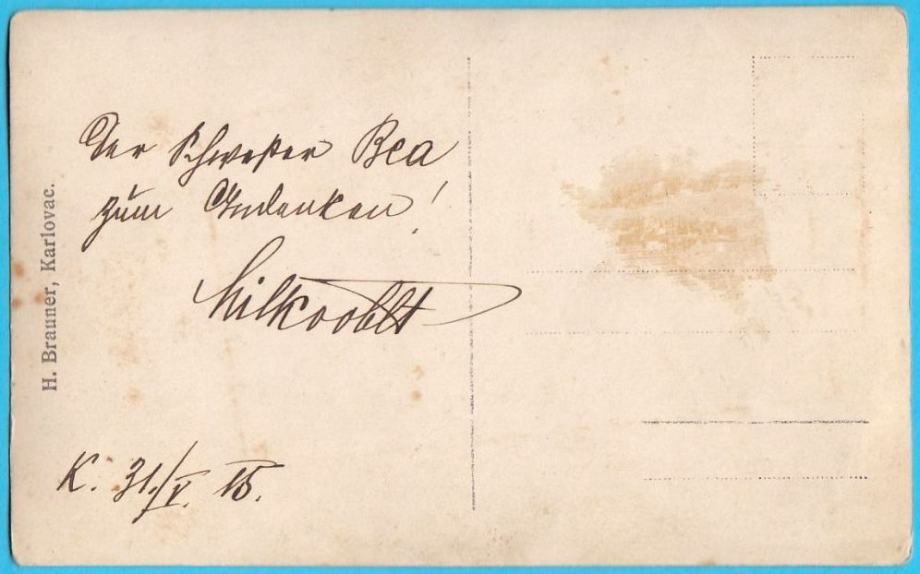 Der Schwester Bea
zum Andenken!
K. 31./V. 15.
H. Brauner, Karlovac.